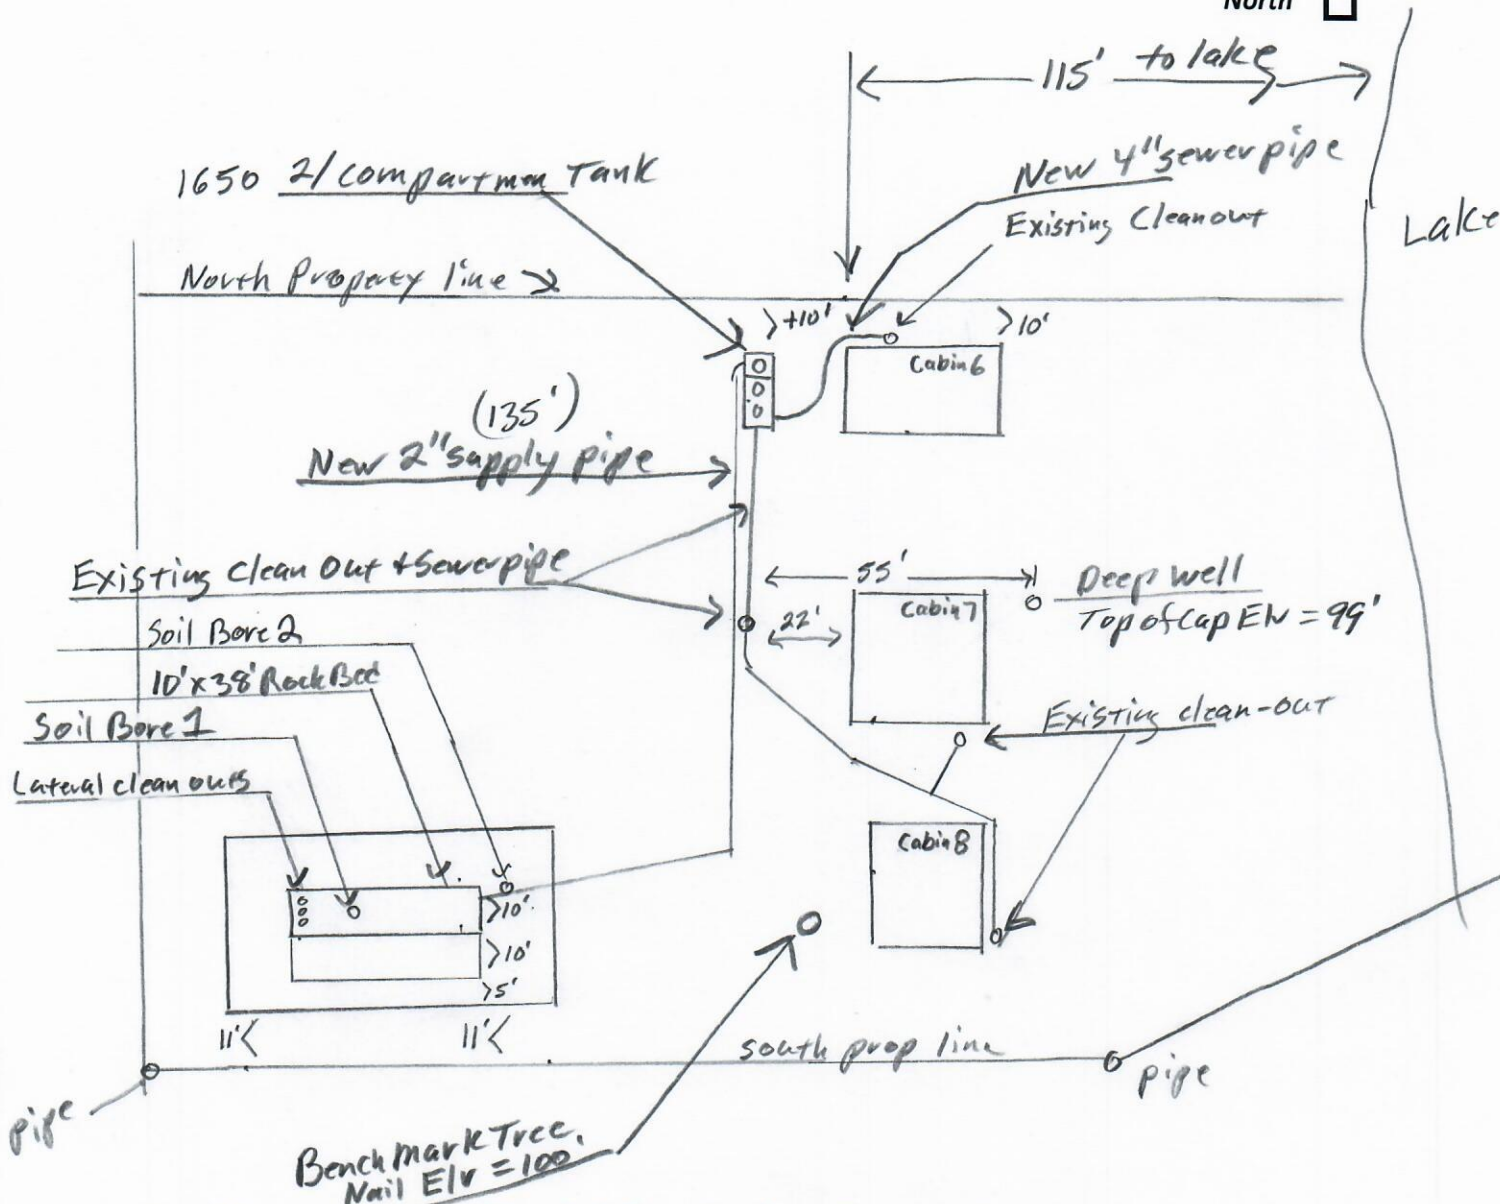 North
115' to lake
1650 2/compartmen Tank
New 4" sewer pipe
Existing Cleanout
Lake
North Property line
>+10'
>10'
Cabin 6
(135')
New 2" supply pipe
Existing Clean Out + Sewer pipe
55'
Deep well
Top of Cap Elv = 99'
Cabin 7
22'
Soil Bore 2
10' x 38' Rock Bed
Soil Bore 1
Existing clean-out
Lateral clean outs
Cabin 8
>10'
>10'
>5'
11'<
11'<
south prop line
pipe
pipe
Bench Mark Tree.
Nail Elv = 100